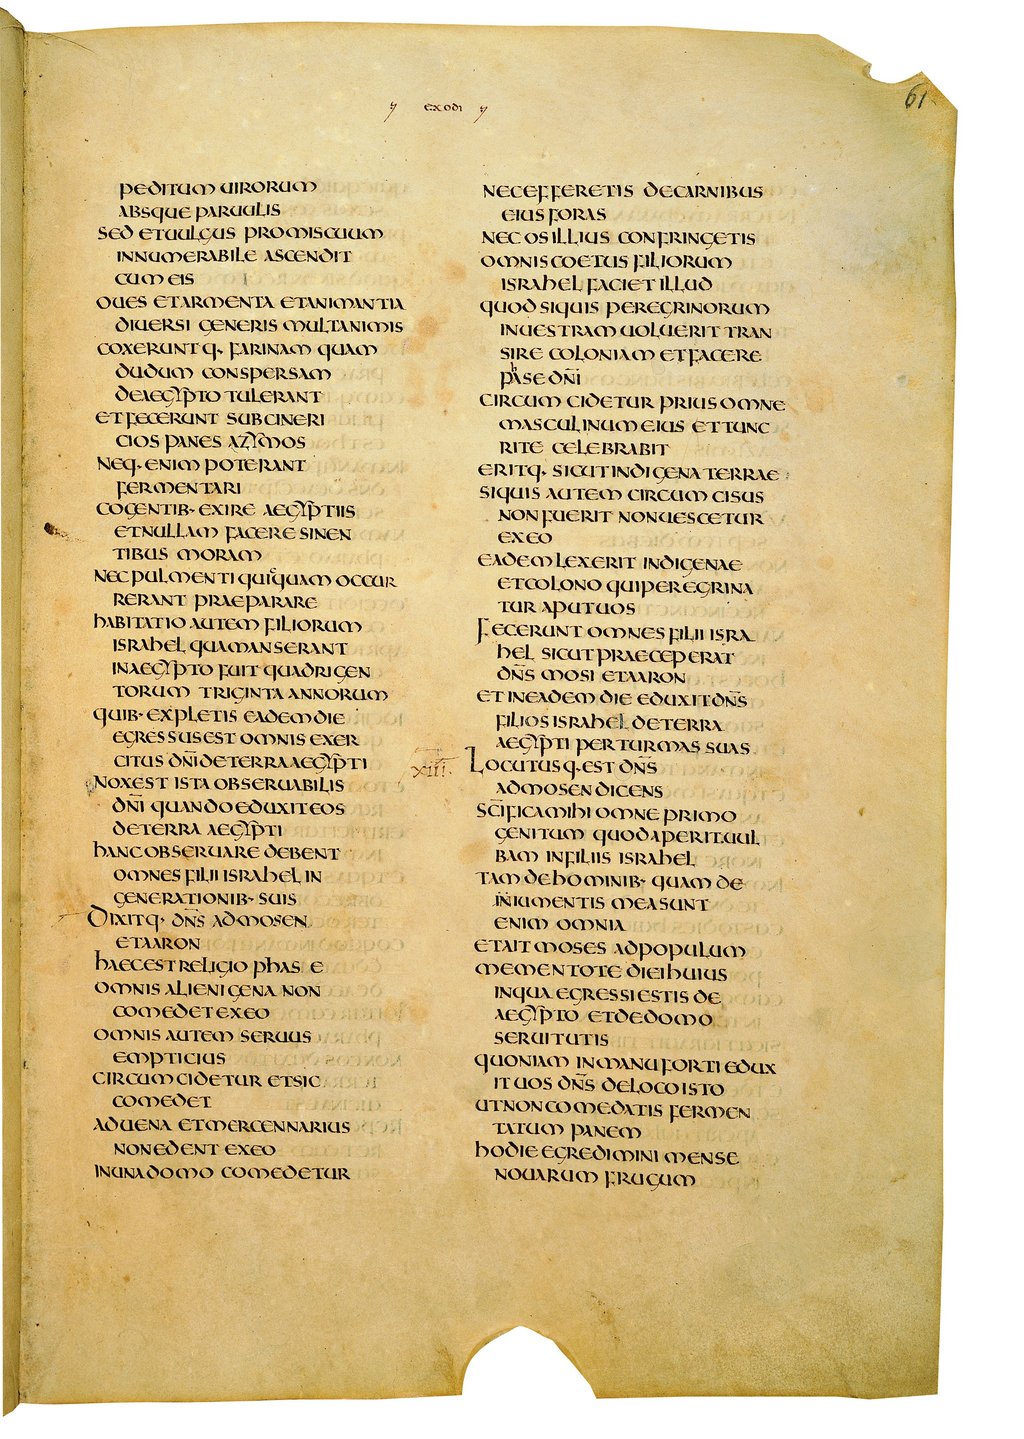 EXODI
61
PEDITUM UIRORUM
ABSQUE PARUULIS
SED ET UULGUS PROMISCUUM
INNUMERABILE ASCENDIT
CUM EIS
OUES ET ARMENTA ET ANIMANTIA
DIUERSI GENERIS MULTA NIMIS
COXERUNTQ· FARINAM QUAM
DUDUM CONSPERSAM
DE AEGYPTO TULERANT
ET FECERUNT SUBCINERI
CIOS PANES AZYMOS
NEQ· ENIM POTERANT
FERMENTARI
COGENTIB· EXIRE AEGYPTIIS
ET NULLAM FACERE SINEN
TIBUS MORAM
NEC PULMENTI QUICQUAM OCCUR
RERANT PRAEPARARE
HABITATIO AUTEM FILIORUM
ISRAHEL QUA MANSERANT
IN AEGYPTO FUIT QUADRIGEN
TORUM TRIGINTA ANNORUM
QUIB· EXPLETIS EADEM DIE
EGRESSUS EST OMNIS EXER
CITUS DN̄I DE TERRA AEGYPTI
NOX EST ISTA OBSERUABILIS
DN̄I QUANDO EDUXIT EOS
DE TERRA AEGYPTI
HANC OBSERUARE DEBENT
OMNES FILII ISRAHEL IN
GENERATIONIB· SUIS
DIXITQ· DN̄S AD MOSEN
ET AARON
HAEC EST RELIGIO PHASE
OMNIS ALIENIGENA NON
COMEDET EX EO
OMNIS AUTEM SERUUS
EMPTICIUS
CIRCUMCIDETUR ET SIC
COMEDET
ADUENA ET MERCENNARIUS
NON EDENT EX EO
IN UNA DOMO COMEDETUR
NEC EFFERETIS DE CARNIBUS
EIUS FORAS
NEC OS ILLIUS CONFRINGETIS
OMNIS COETUS FILIORUM
ISRAHEL FACIET ILLUD
QUOD SI QUIS PEREGRINORUM
IN UESTRAM UOLUERIT TRAN
SIRE COLONIAM ET FACERE
PHASE DN̄I
CIRCUMCIDETUR PRIUS OMNE
MASCULINUM EIUS ET TUNC
RITE CELEBRABIT
ERITQ· SICUT INDIGENA TERRAE
SI QUIS AUTEM CIRCUMCISUS
NON FUERIT NON UESCETUR
EX EO
EADEM LEX ERIT INDIGENAE
ET COLONO QUI PEREGRINA
TUR APUT UOS
FECERUNT OMNES FILII ISRA
HEL SICUT PRAECEPERAT
DN̄S MOSI ET AARON
ET IN EADEM DIE EDUXIT DN̄S
FILIOS ISRAHEL DE TERRA
AEGYPTI PER TURMAS SUAS
XIII. LOCUTUSQ· EST DN̄S
AD MOSEN DICENS
SC̄IFICA MIHI OMNE PRIMO
GENITUM QUOD APERIT UUL
BAM IN FILIIS ISRAHEL
TAM DE HOMINIB· QUAM DE
INIUMENTIS MEA SUNT
ENIM OMNIA
ET AIT MOSES AD POPULUM
MEMENTOTE DIEI HUIUS
IN QUA EGRESSI ESTIS DE
AEGYPTO ET DE DOMO
SERUITUTIS
QUONIAM IN MANU FORTI EDUX
IT UOS DN̄S DE LOCO ISTO
UT NON COMEDATIS FERMEN
TATUM PANEM
HODIE EGREDIMINI MENSE
NOUARUM FRUGUM